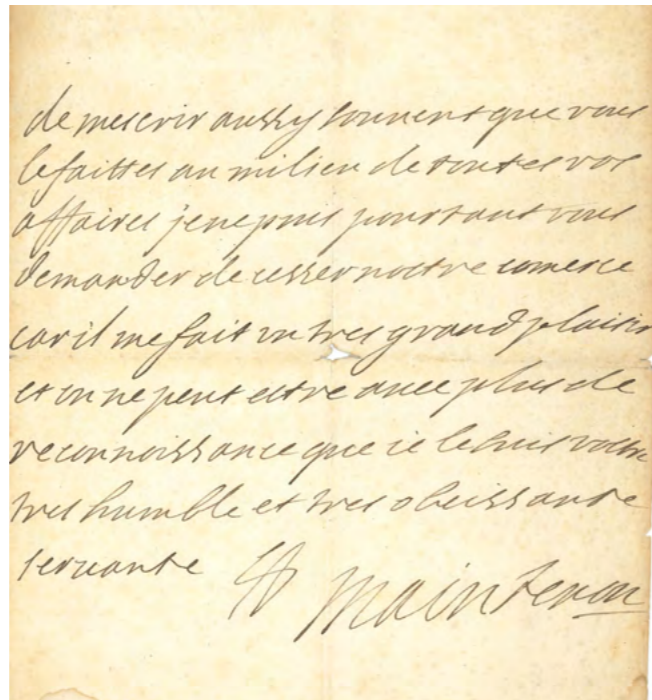 de mescrir aussy souvent que vous
le faittes au milieu de touttes vos
affaires je ne puis pourtant vous
demander de cesser nostre comerce
car il me fait un tres grand plaisir
et on ne peut estre avec plus de
reconnoissance que ie le suis vostre
tres humble et tres obeissante
servante Maintenon